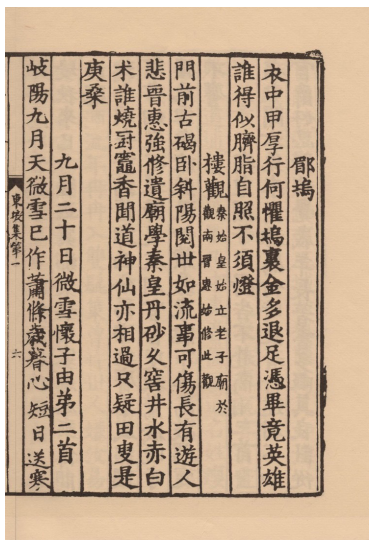 郿塢
衣中甲厚行何懼塢裏金多退足憑畢竟英雄
誰得似臍脂自照不須燈
樓觀秦始皇始立老子廟於觀南晉惠始修此觀
門前古碣卧斜陽閱世如流事可傷長有遊人
悲晉惠強修遺廟學秦皇丹砂久窖井水赤白
术誰燒𠖇竈香聞道神仙亦相過只疑田叟是
庚桑
九月二十日微雪懷子由弟二首
岐陽九月天微雪已作蕭條歲暮心短日送寒
東坡集第一
六